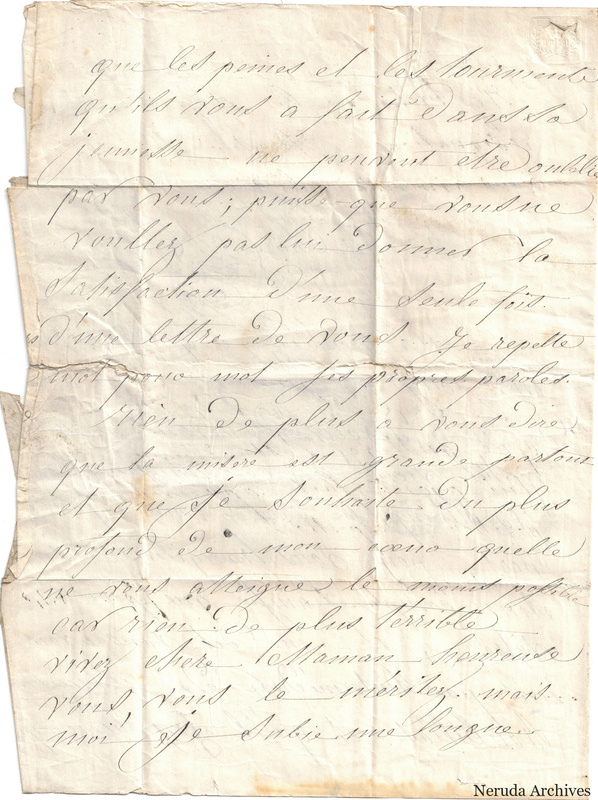 que les peines et les tourments
qu'ils vous a fait dans sa
jeunesse ne peuvent être oublie
par vous; puisse que vous ne
voullez pas lui donner la
satisfaction d'une seule fois.
d'une lettre de vous. Je repette
mot pour mot ses propres paroles.
rien de plus a vous dire
que la misere est grande partout
et que Je souhaite du plus
profond de mon coeur quelle
ne vous atteigne le moins possible
car rien de plus térrible
vivez chère Maman heureuse
vous vous le méritez. mais...
moi Je subie une longue
Neruda Archives